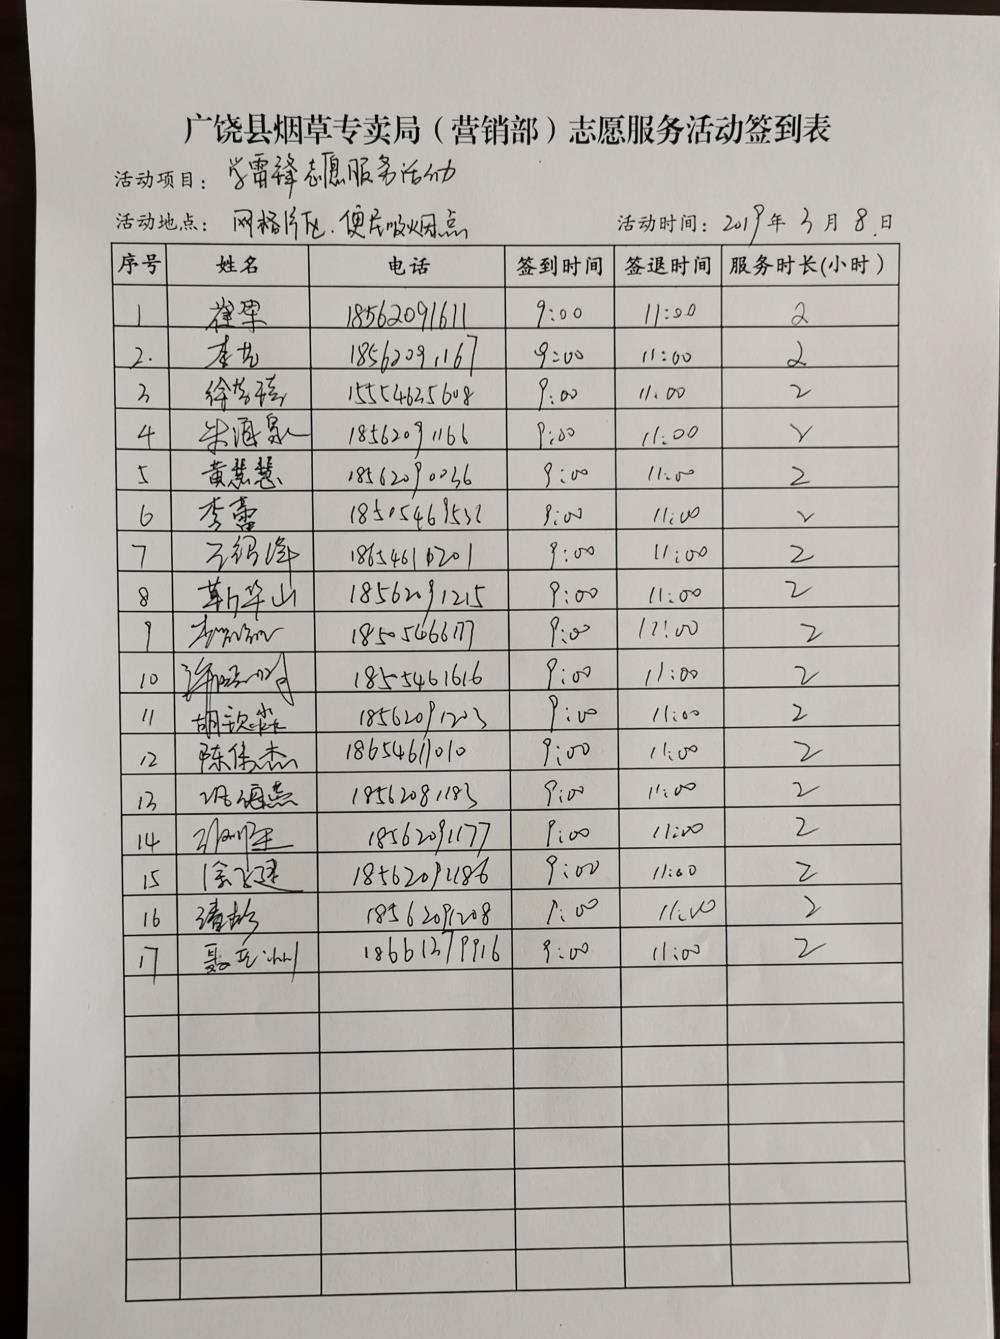 广饶县烟草专卖局（营销部）志愿服务活动签到表
活动项目：学雷锋志愿服务活动
活动地点：网格片区、便民吸烟点 活动时间：2019年3月8日
序号 姓名 电话 签到时间 签退时间 服务时长(小时)
1 崔军 18562091611 9:00 11:00 2
2. 18562091167 9:00 11:00 2
3 15554625608 9:00 11:00 2
4 朱海泉 18562091166 9:00 11:00 2
5 黄慧慧 18562090036 9:00 11:00 2
6 李蕾 9:00 11:00 2
7 18654616201 9:00 11:00 2
8 靳华山 18562091215 9:00 11:00 2
9 9:00 2
10 18554561616 9:00 11:00 2
11 胡钦淼 18562091203 9:00 11:00 2
12 陈伟杰 18654611010 9:00 11:00 2
13 18562081183 9:00 11:00 2
14 18562091177 9:00 11:00 2
15 18562091186 9:00 11:00 2
16 18562091208 9:00 11:00 2
17 18661379916 9:00 11:00 2